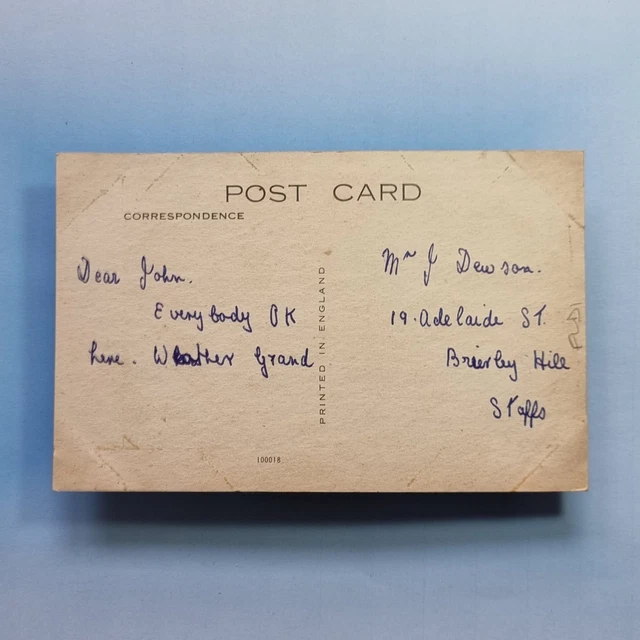 POST CARD
CORRESPONDENCE
Dear John.
Everybody OK
here. Weather Grand
PRINTED IN ENGLAND
Mr J Dewson.
19. Adelaide St.
Brierley Hill
Staffs
100018